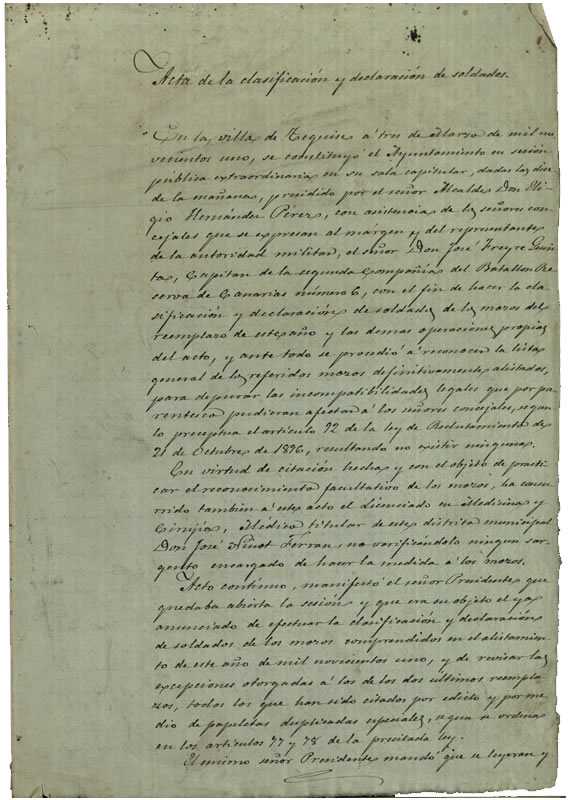 Acta de la clasificación y declaración de soldados.
En la villa de Teguise á tres de Marzo de mil no
vecientos uno, se constituyó el Ayuntamiento en sesión
pública extraordinaria en su sala capitular, dadas las diez
de la mañana, presidido por el señor Alcalde Don Eli
gio Hernández Pérez, con asistencia de los señores con
cejales que se expresan al márgen y del representante
de la autoridad militar, el señor Don José Freyre
Capitan de la segunda Compañia del Batallon Re
serva de Canarias número 6, con el fin de hacer la cla
sificación y declaración de soldados de los mozos del
reemplazo de este año y las demas operaciones propias
del acto, y ante todo se procedió á reconocer la lista
general de los referidos mozos definitivamente alistados,
para depurar las incompatibilidades legales que por pa
rentesco pudieran afectar á los señores concejales, segun
lo preceptua el artículo 92 de la ley de Reclutamiento de
21 de Octubre de 1896, resultando no existir ninguna.
En virtud de citación hecha y con el objeto de practi
car el reconocimiento facultativo de los mozos, ha concu
rrido tambien á este acto el Licenciado en Medicina y
Cirujía, Médico titular de este distrito municipal
Don José Ferran, no varificándolo ningun sar
gento encargado de hacer la medida á los mozos.
Acto contínuo, manifestó el señor Presidente que
quedaba abierta la sesión y que era su objeto el ya
anunciado de efectuar la clasificación y declaración
de soldados de los mozos comprendidos en el alistamien
to de este año de mil novecientos uno, y de revisar las
excepciones otorgadas á los de los dos últimos reempla
zos, todos los que han sido citados por edicto y por me
dio de papeletas duplicadas especiales, segun se ordena
en los artículos 77 y 78 de la precitada ley.
El mismo señor Presidente mandó que se leyeran y